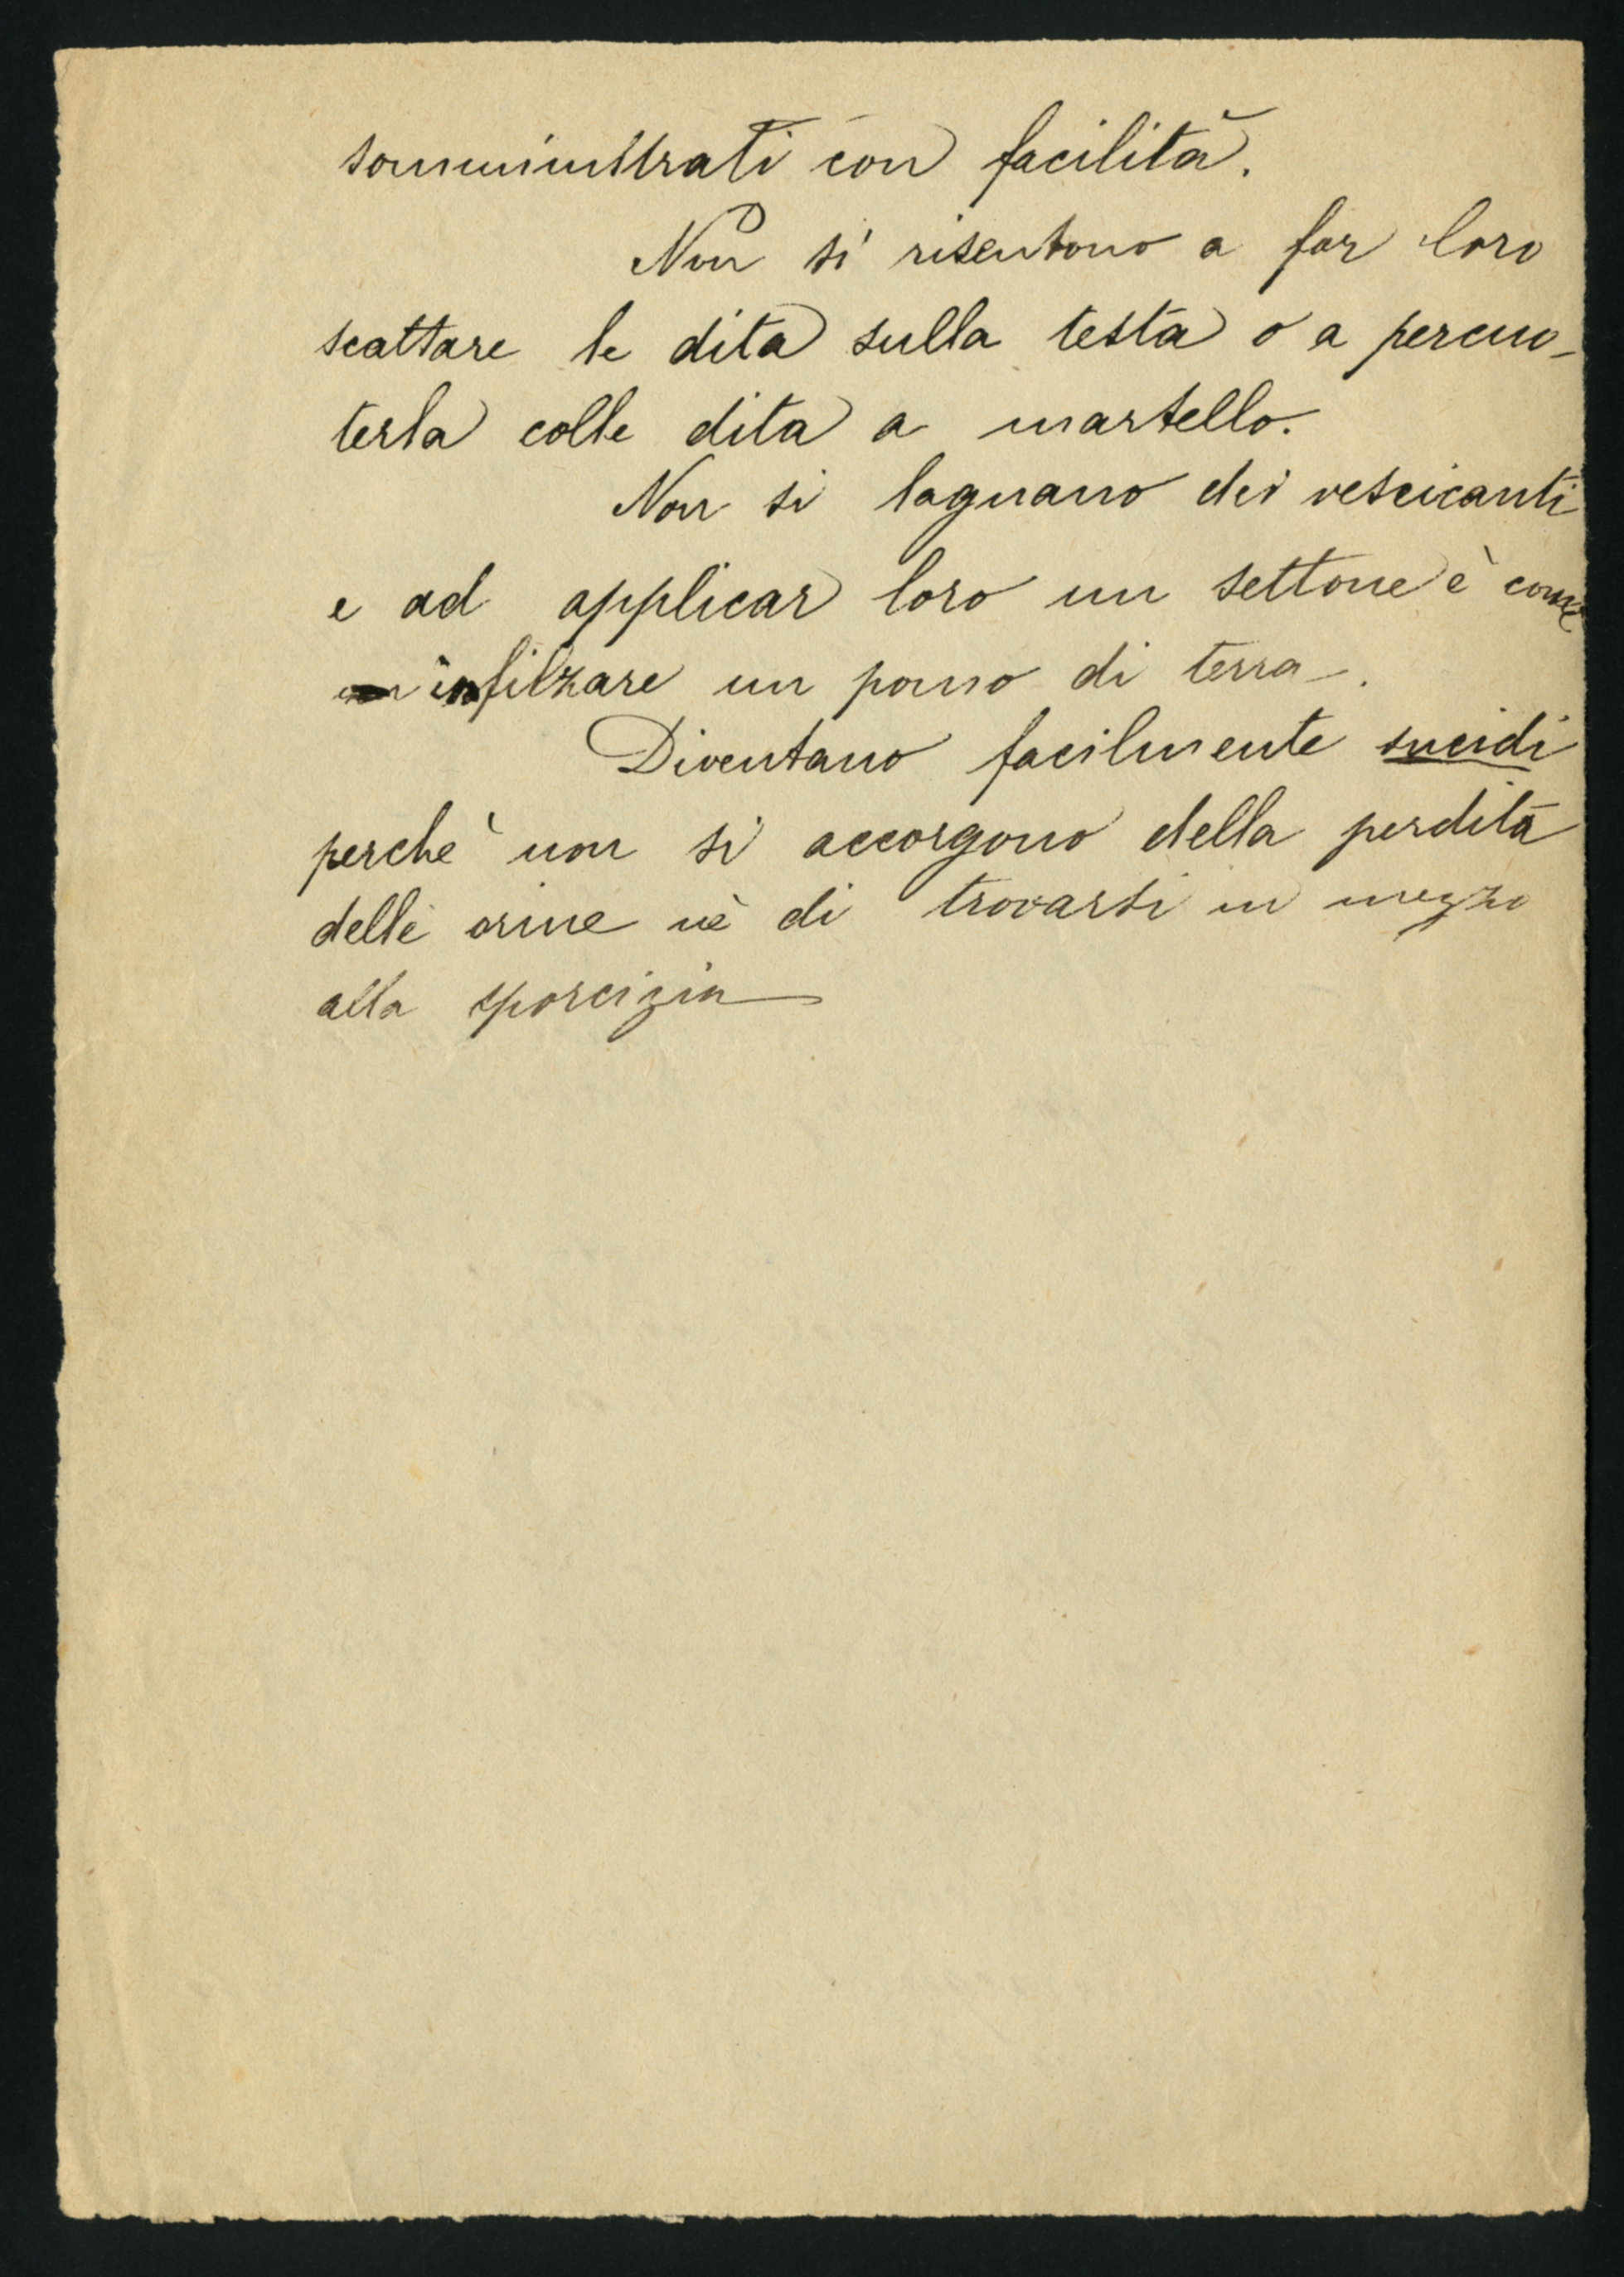 somministrati con facilità.
Non si risentono a far loro
scattare le dita sulla testa o a percuo-
terla colle dita a martello.
Non si lagnano dei vescicanti
e ad applicar loro un settone è come
infilzare un pomo di terra.
Diventano facilmente sucidi
perchè non si accorgono della perdita
delle orine nè di trovarsi in mezzo
alla sporcizia